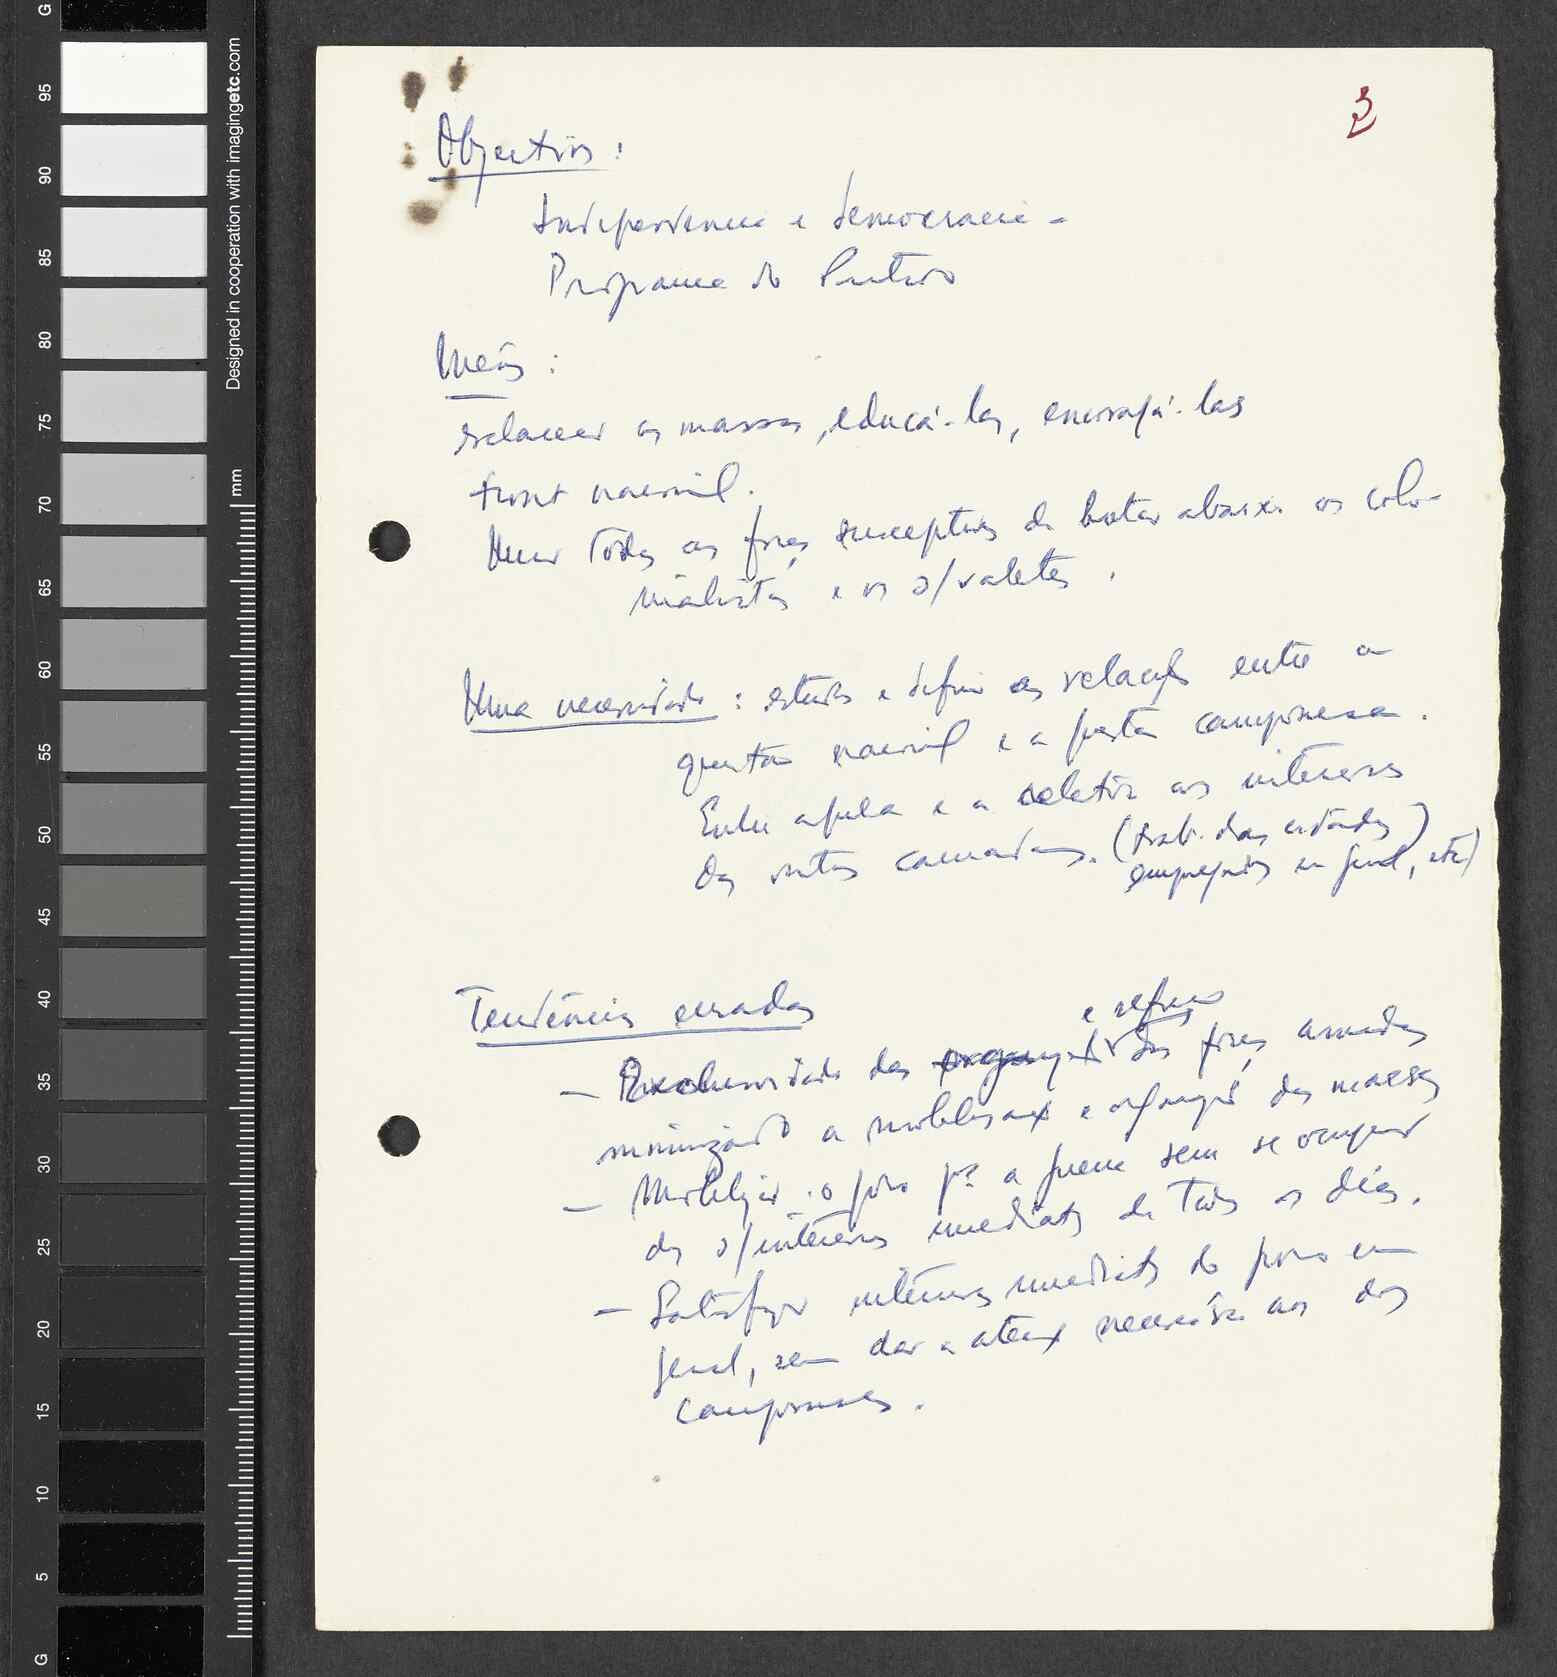 3
Objectivos :
Independencia e democracia -
Programa do Partido
Meios :
esclarecer as massas, educá-las, encorajá-las
front nacional.
Unir todas as forças susceptives de botar abaixo os colo-
nialistas e os s/ valetes.
Uma necessidade : estudar e definir as relações entre a
questão nacional e a questão camponesa.
Entre aquela e a relativa aos interesses
das outras camadas. (trab. das cidades,
empregados em geral, etc)
Tendências erradas
e reforço
- Exclusividade das forças armadas
minimizando a mobilização e organização das massas
- Mobilizar o povo pª a guerra sem se ocupar
dos s/ interesses imediatos de todos os dias.
- Satisfazer interesses imediatos do povo em
geral, sem dar a atenção necessária aos dos
camponeses.
G
95
90
85
80
75
70
65
60
55
50
45
40
35
30
25
20
15
10
5
G
mm
Designed in cooperation with imagingetc.com